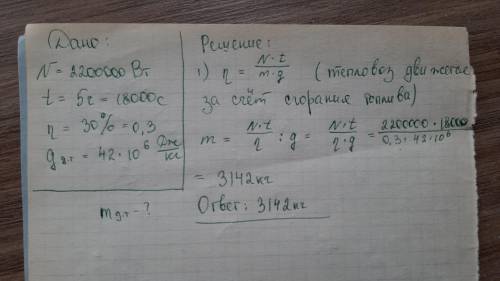 Дано:
N = 2200000 Вт
t = 5ч = 18000с
η = 30% = 0,3
g д.т = 42·10⁶ Дж/кг
m д.т - ?
Решение:
1) η = N·t / m·g (тепловоз движется
за счёт сгорания топлива)
m = N·t / η : g = N·t / η·g = 2200000·18000 / 0,3·42·10⁶
= 3142кг
Ответ: 3142кг